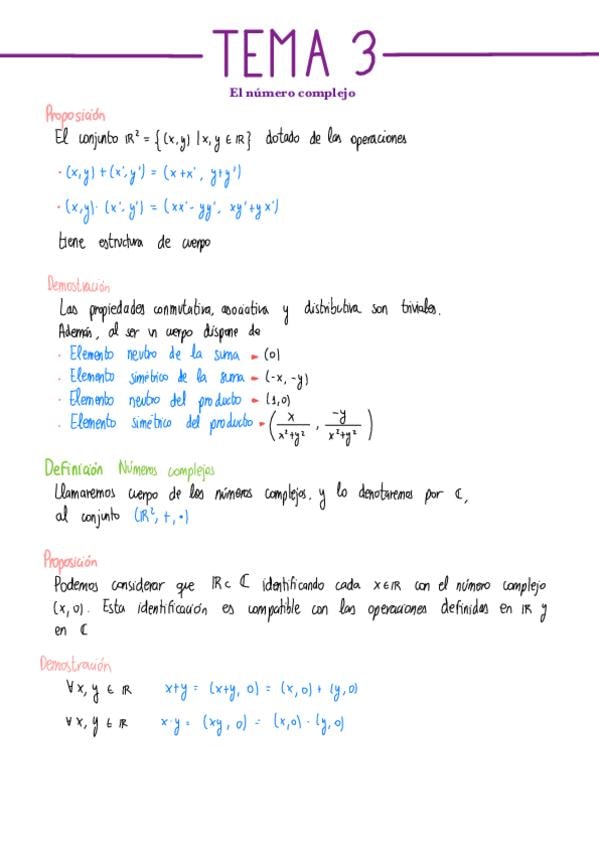 TEMA 3
El número complejo
Proposición
El conjunto ℝ² = {(x,y) | x, y ∈ ℝ} dotado de las operaciones
· (x,y) + (x',y') = (x+x', y+y')
· (x,y)· (x',y') = (xx'- yy', xy'+yx')
tiene estructura de cuerpo
Demostración
Las propiedades conmutativa, asociativa y distributiva son triviales.
Además, al ser un cuerpo dispone de
· Elemento neutro de la suma - (0)
· Elemento simétrico de la suma - (-x, -y)
· Elemento neutro del producto - (1,0)
· Elemento simétrico del producto - (x/(x²+y²), -y/(x²+y²))
Definición Números complejos
Llamaremos cuerpo de los números complejos, y lo denotaremos por ℂ,
al conjunto (ℝ², +, ·)
Proposición
Podemos considerar que ℝ ⊂ ℂ identificando cada x∈ℝ con el número complejo
(x, 0). Esta identificación es compatible con las operaciones definidas en ℝ y
en ℂ
Demostración
∀ x, y ∈ ℝ x+y = (x+y, 0) = (x, 0) + (y, 0)
∀ x, y ∈ ℝ x·y = (xy, 0) = (x,0) · (y, 0)